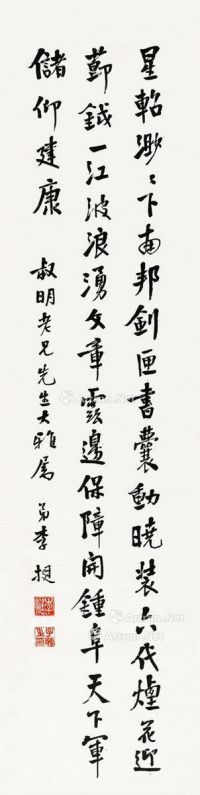 星軺渺渺下南邦劍匣書囊動曉裝六代煙花迎
節鉞一江波浪湧文章雲邊保障開鍾阜天下軍
儲仰建康
叔明老兄先生大雅屬 弟李挺